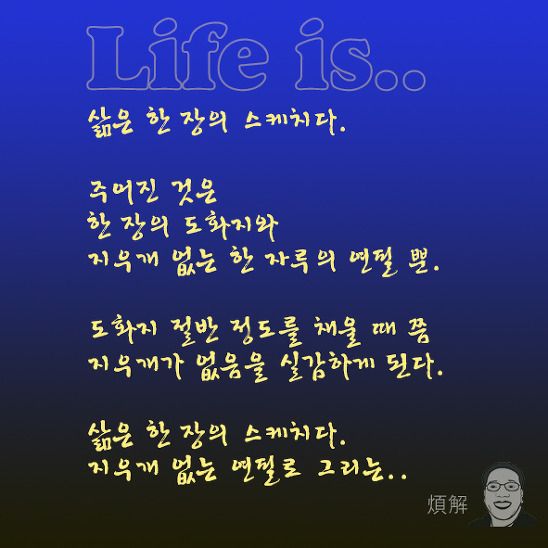 Life is..
삶은 한 장의 스케치다.
주어진 것은
한 장의 도화지와
지우개 없는 한 자루의 연필 뿐.
도화지 절반 정도를 채울 때 쯤
지우개가 없음을 실감하게 된다.
삶은 한 장의 스케치다.
지우개 없는 연필로 그리는..
煩解